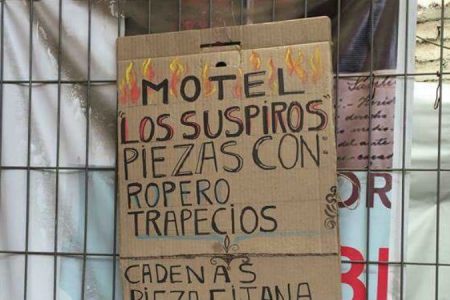 MOTEL
"LOS SUSPIROS"
PIEZAS CON:
ROPERO
TRAPECIOS
CADENAS
PIEZA GITANA
OR
BI